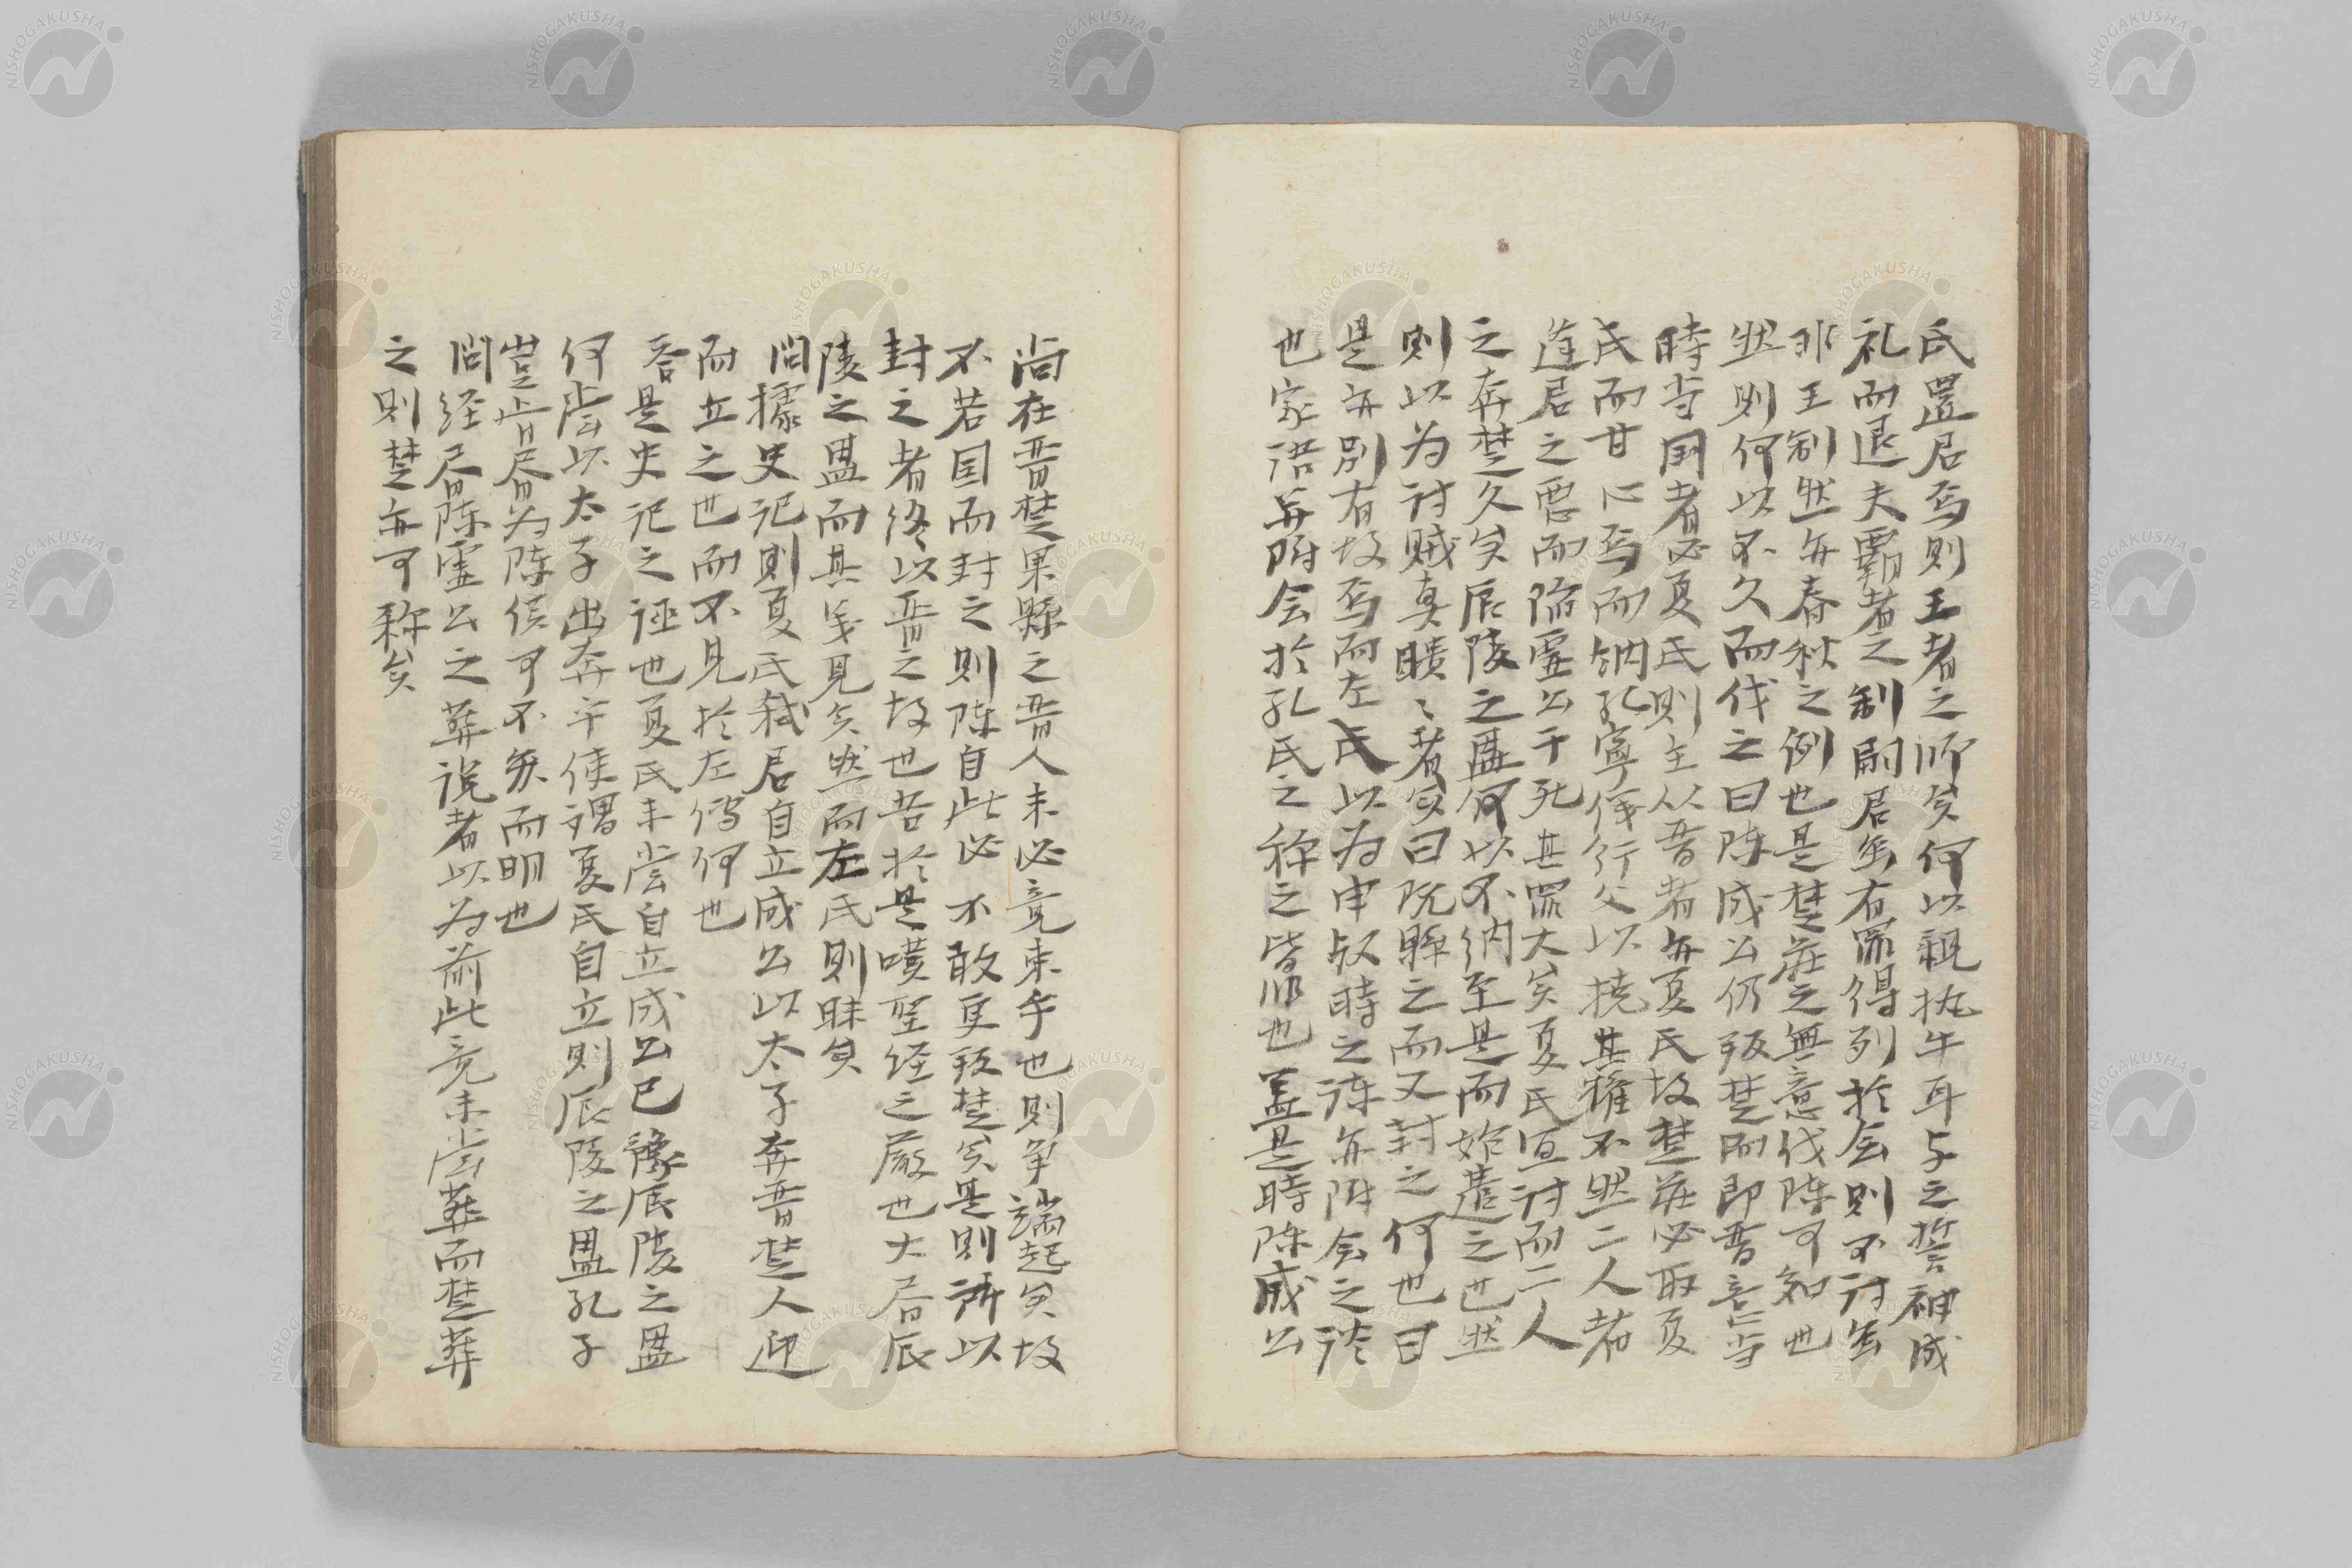 氏置君焉則王者之師矣何以親執牛耳与之誓神成
礼而退夫覇者之制嗣君虽有罪得列於会則不討虽
非王制然亦春秋之例也是楚莊之無意伐陳可知也
然則何以不久而伐之曰陳成公仍叛楚而即晋言当
時当国者必夏氏則主从晋者亦夏氏故楚莊必取夏
氏而甘心焉而納孔寧儀行父以撓其権不然二人者
逢君之悪而陥霊公于死其罪大矣夏氏宜討而二人
之奔楚久矣辰陵之盟何以不納至是而始納之也然
則以為討賊真瞶〻者矣曰既縣之而又封之何也曰
是亦別有故焉而左氏以為申叔時之諌亦附会之談
也家語并附会於孔氏之称之皆非也蓋是時陳成公
尚在晋楚果縣之晋人未必竟束手也則争端起矣故
不若国而封之則陳自此必不敢更叛楚矣是則所以
封之者終以晋之故也苦於是嘆聖経之厳也大居辰
陵之盟而其義見矣然而左氏則昧矣
問據史記則夏氏弑君自立成公以太子奔晋楚人迎
而立之也而不見於左傳何也
答是史記之誣也夏氏未嘗自立成公已豫辰陵之盟
何嘗以太子出奔乎使謂夏氏自立則辰陵之盟孔子
豈肯居為陳侯可不笑而明也
問経居陳霊公之葬説者以為前此竟未嘗葬而楚葬
之則楚亦可称矣